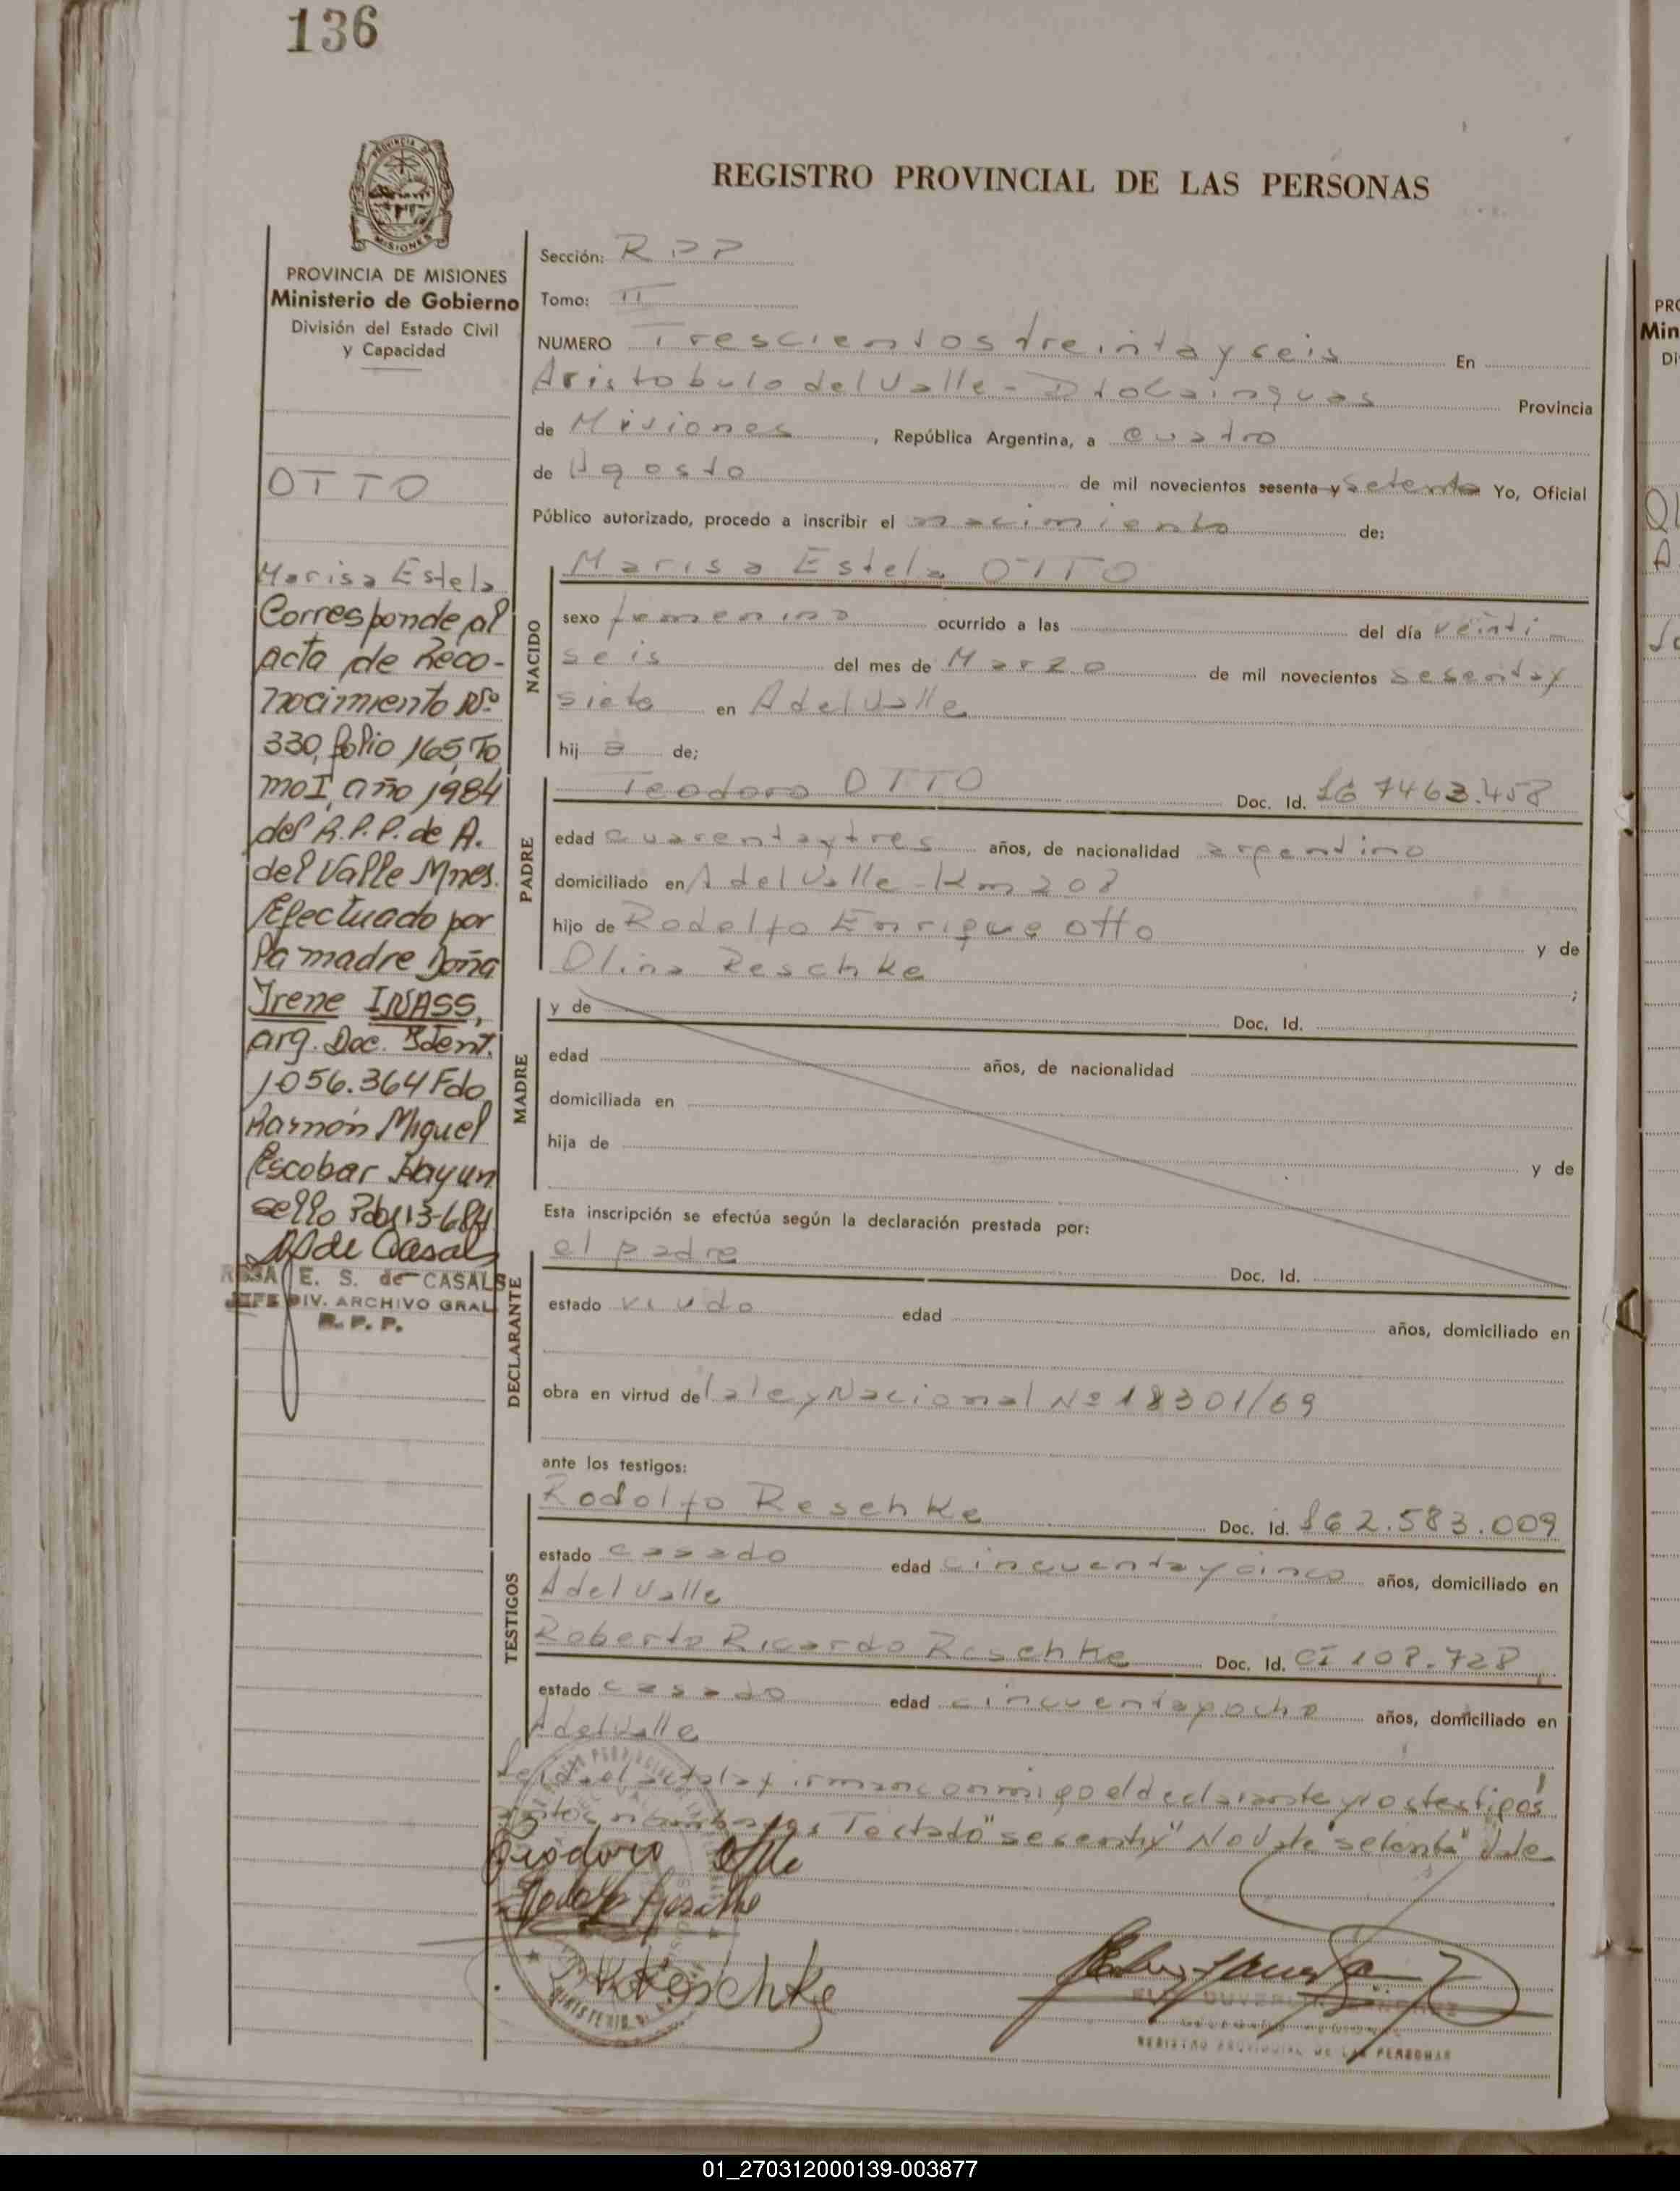 136
PROVINCIA DE MISIONES
Ministerio de Gobierno
División del Estado Civil
y Capacidad
OTTO
Marisa Estela
Corresponde al
acta de Reco-
nocimiento Nº
330, folio 165, To
mo I, año 1984
del R.P.P. de A.
del Valle Mnes.
Efectuado por
la madre Doña
Irene INASS,
arg. Doc. Ident.
1.056.364 Fdo
Ramón Miguel
Escobar Hayun
sello
de Casals
ROSA E. S. de CASALS
JEFE DIV. ARCHIVO GRAL
R. P. P.
REGISTRO PROVINCIAL DE LAS PERSONAS
Sección: RPP
Tomo: II
NUMERO Trescientos treinta y seis En
Aristobulo del Valle - Dto Cainguas Provincia
de Misiones, República Argentina, a cuatro
de Agosto de mil novecientos sesenta y setenta Yo, Oficial
Público autorizado, procedo a inscribir el nacimiento de:
NACIDO
Marisa Estela OTTO
sexo femenino ocurrido a las del día veinti
seis del mes de Marzo de mil novecientos sesenta y
siete en A del Valle
hij a de;
PADRE
Teodoro OTTO Doc. Id. 7463.458
edad cuarenta y tres años, de nacionalidad argentino
domiciliado en A del Valle - Km 208
hijo de Rodolfo Enrique Otto y de
Olina Reschke ;
MADRE
y de Doc. Id.
edad años, de nacionalidad
domiciliada en
hija de y de
Esta inscripción se efectúa según la declaración prestada por:
DECLARANTE
el padre Doc. Id.
estado viudo edad años, domiciliado en
obra en virtud de la ley Nacional Nº 18301/69
ante los testigos:
TESTIGOS
Rodolfo Reschke Doc. Id. 2.583.009
estado casado edad cincuenta y cinco años, domiciliado en
A del Valle
Roberto Ricardo Reschke Doc. Id. CI 108.728,
estado casado edad cincuenta y ocho años, domiciliado en
A del Valle
Leida el acta la firman conmigo el declarante y los testigos
Testado "sesenta y" No Vale "setenta" Vale
Teodoro Otto
Reschke
REGISTRO PROVINCIAL DE LAS PERSONAS
01_270312000139-003877